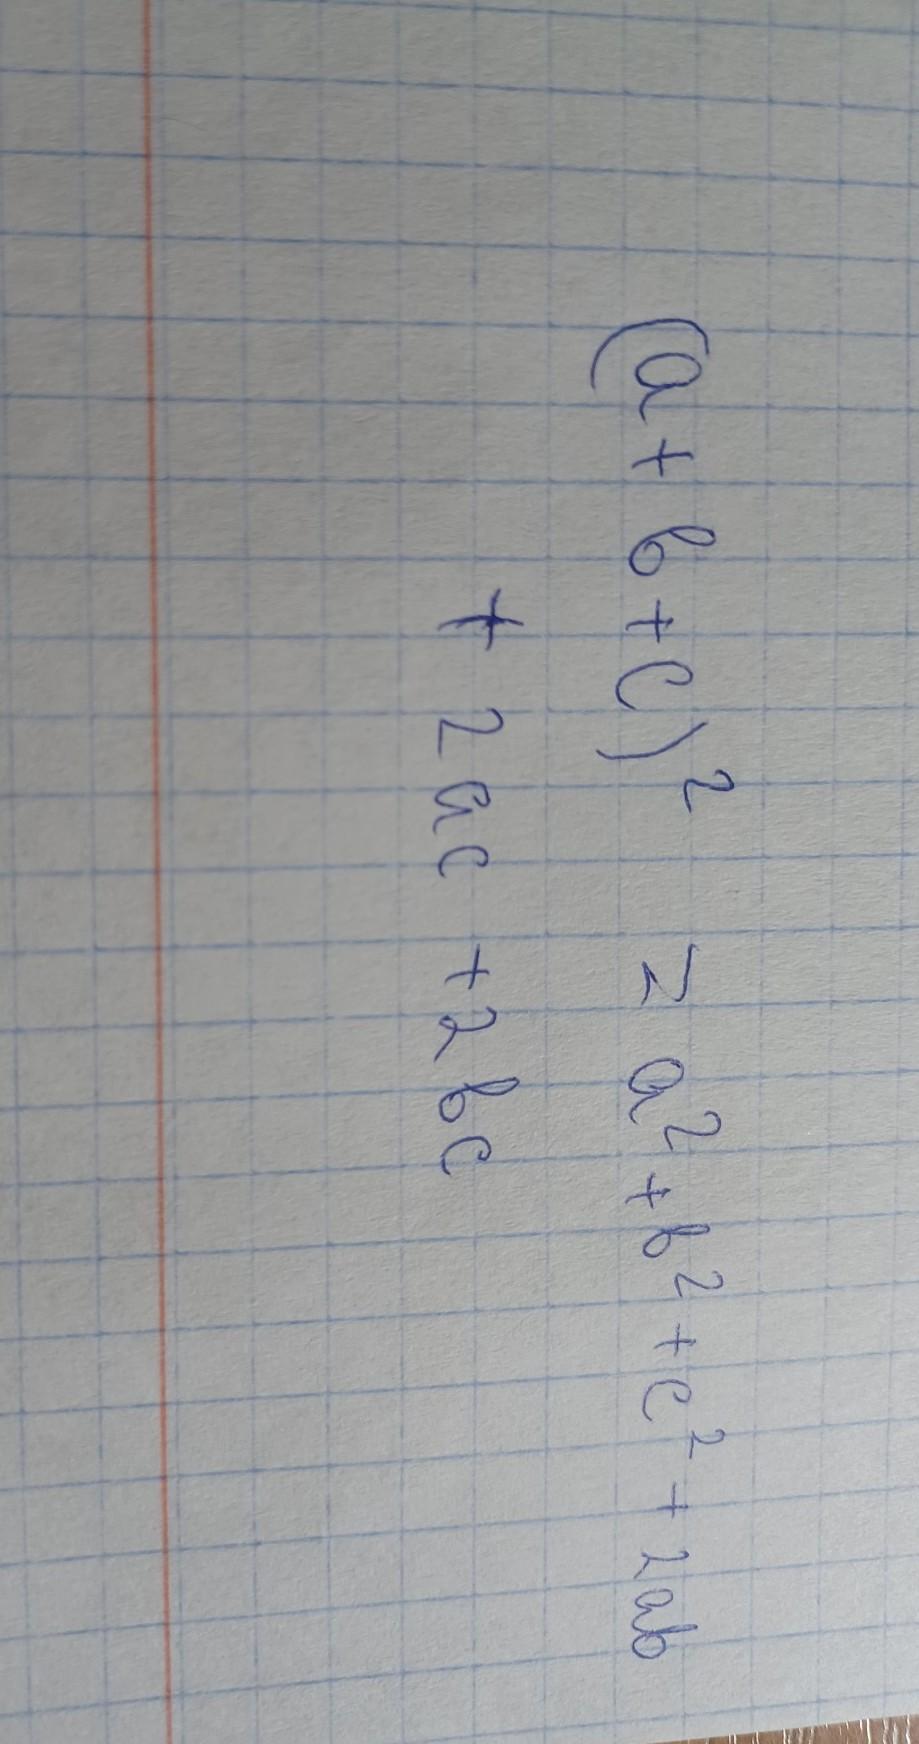 (a + b + c)² = a² + b² + c² + 2ab
+ 2ac + 2bc